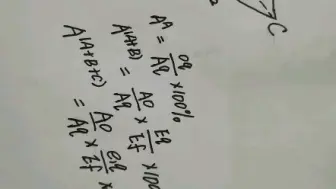 C
A^A = oq/Aq × 100%
A^(A+B) = Ao/Aq × Eq/Ef × 100
A^(A+B+C) = Ao/Aq × eq/Ef ×